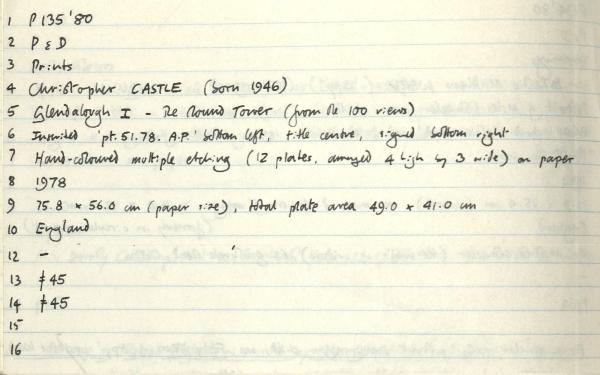 1 P135'80
2 P & D
3 Prints
4 Christopher CASTLE (born 1946)
5 Glendalough I - The Round Tower (from the 100 views)
6 Inscribed 'pt.51.78. A.P.' bottom left, title centre, signed bottom right
7 Hand-coloured multiple etching (12 plates, arranged 4 high by 3 wide) on paper
8 1978
9 75.8 x 56.0 cm (paper size), total plate area 49.0 x 41.0 cm
10 England
12 -
13 £45
14 £45
15
16